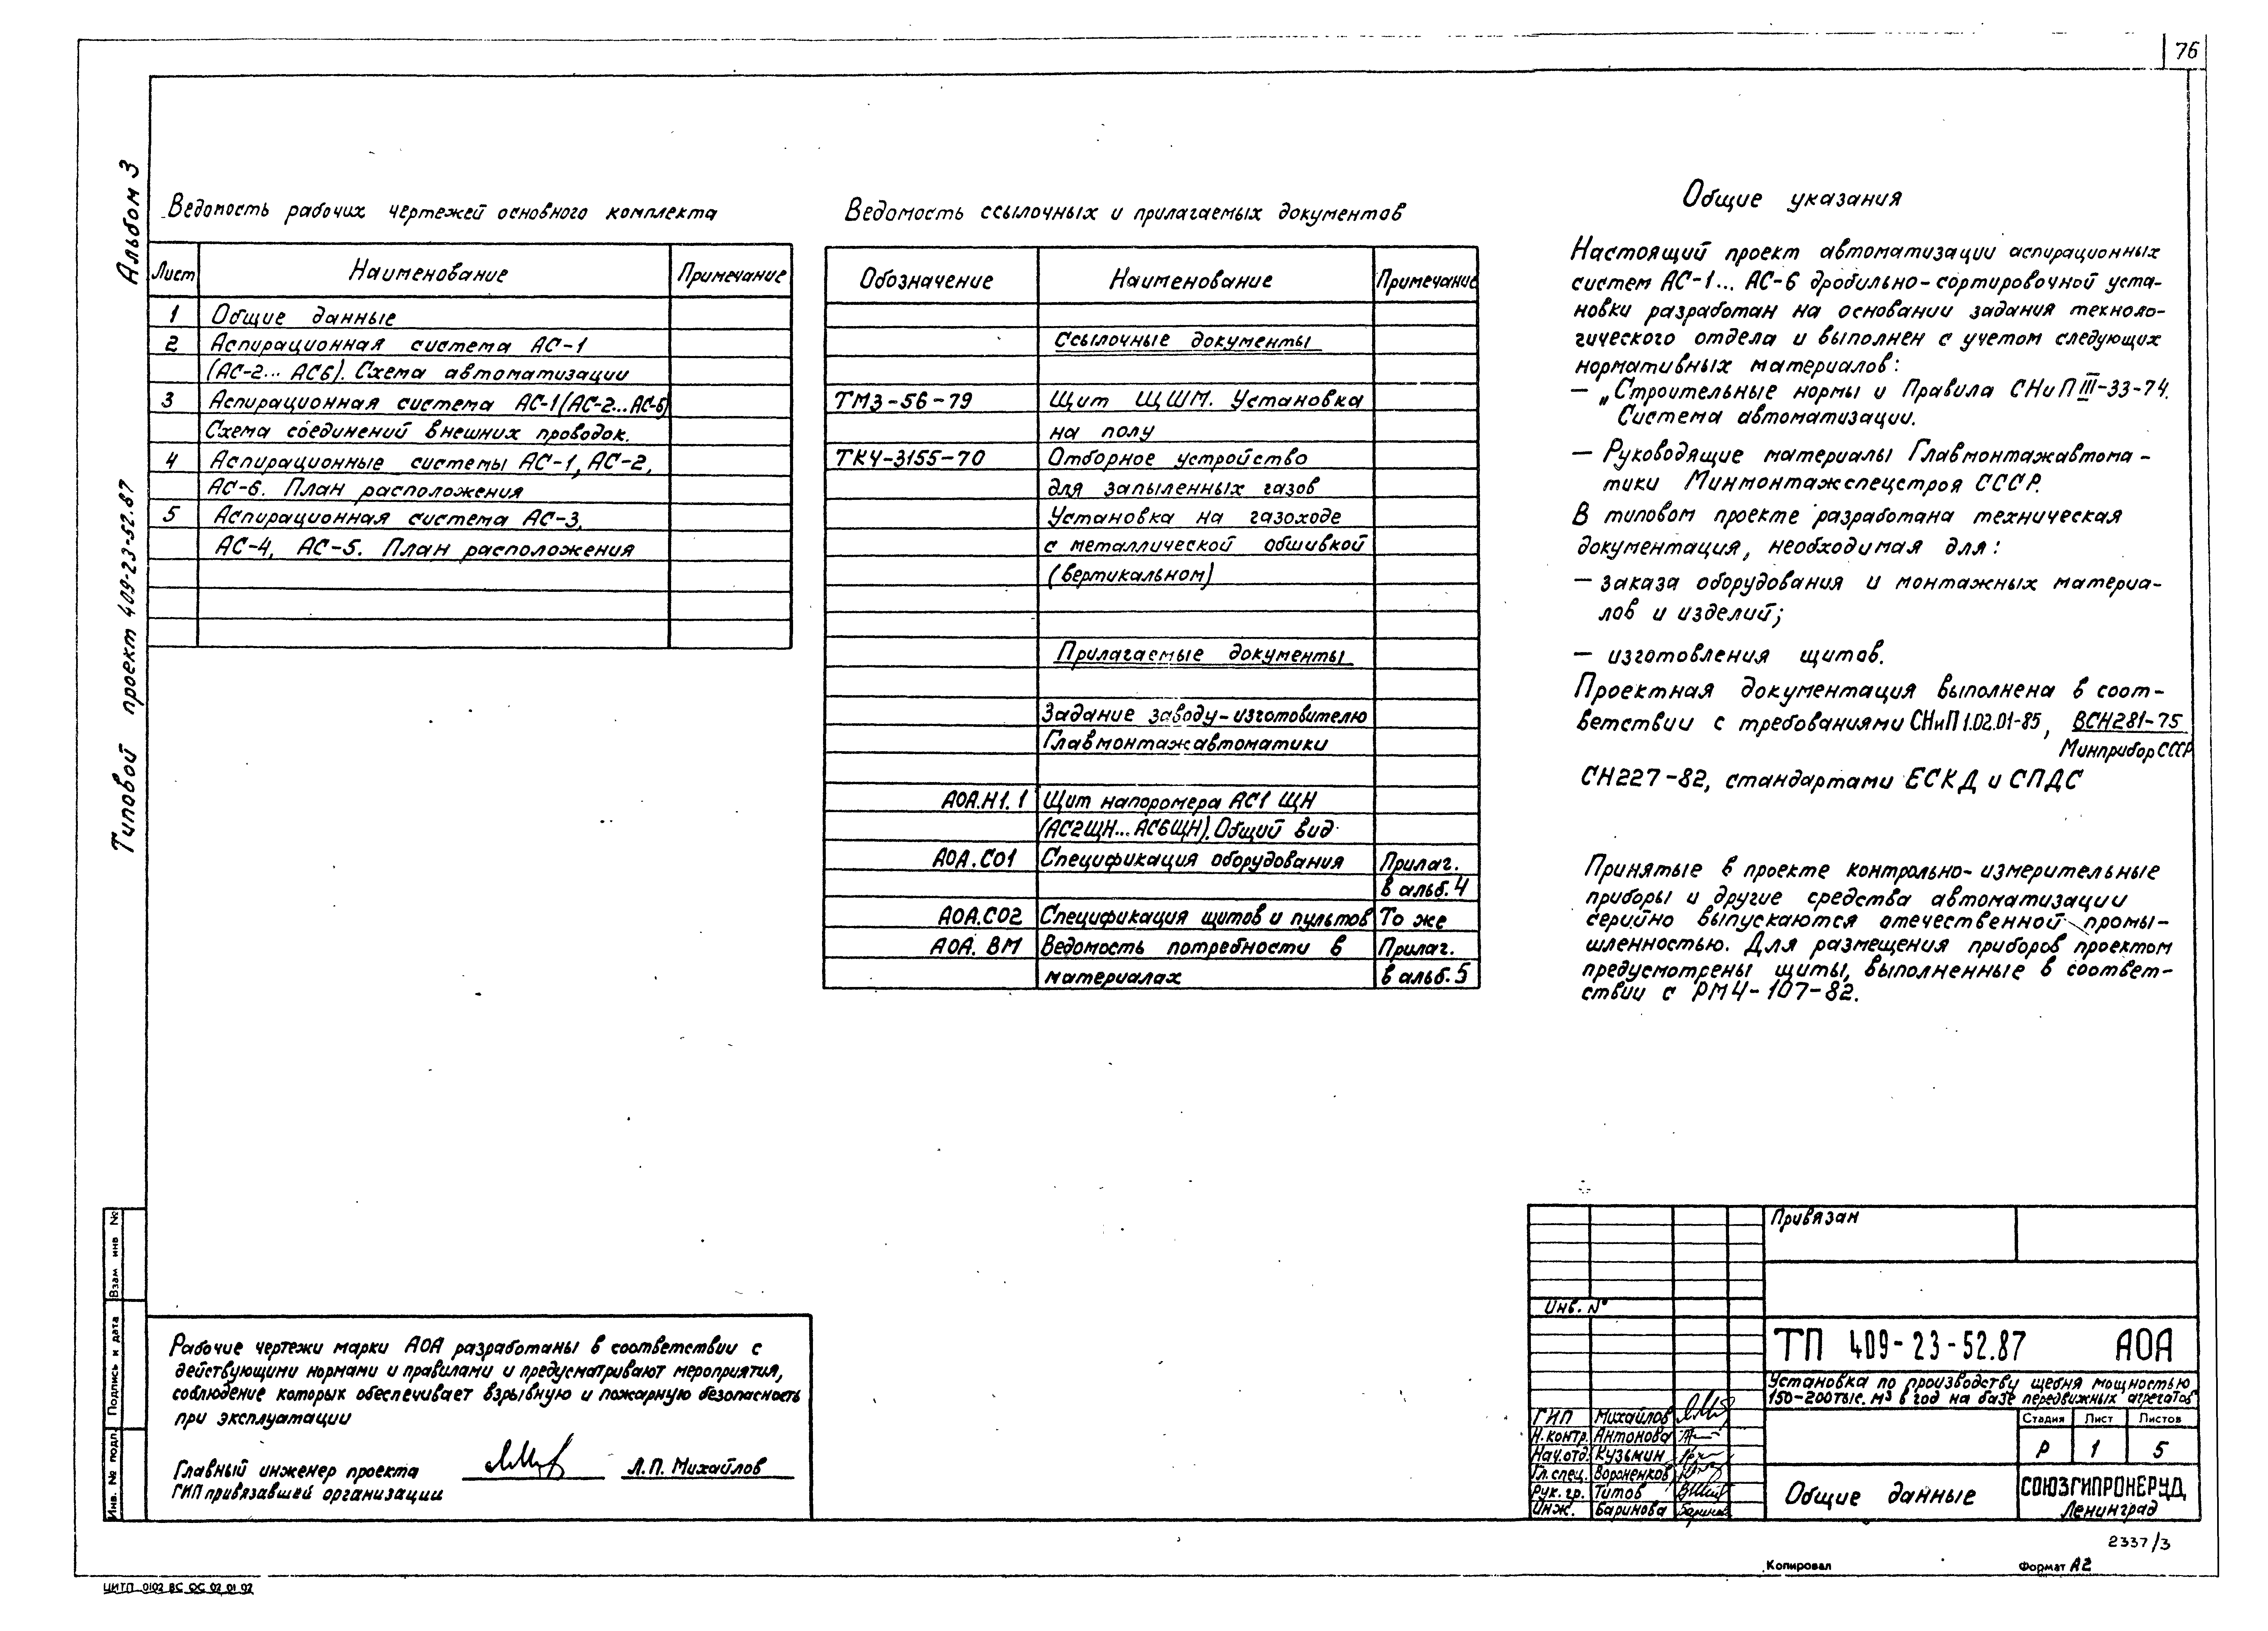 76
Альбом 3
Типовой проект 409-23-52.87
Ведомость рабочих чертежей основного комплекта
Лист Наименование Примечание
1 Общие данные
2 Аспирационная система АС-1
(АС-2... АС6). Схема автоматизации
3 Аспирационная система АС-1(АС-2...АС-6)
Схема соединений внешних проводок.
4 Аспирационные системы АС-1, АС-2,
АС-6. План расположения
5 Аспирационная система АС-3,
АС-4, АС-5. План расположения
Ведомость ссылочных и прилагаемых документов
Обозначение Наименование Примечание
Ссылочные документы
ТМ3-56-79 Щит ЩШМ. Установка
на полу
ТКЧ-3155-70 Отборное устройство
для запыленных газов
Установка на газоходе
с металлической обшивкой
(вертикальном)
Прилагаемые документы
Задание заводу-изготовителю
Главмонтажавтоматики
АОА.Н1.1 Щит напоромера АС1 ЩН
(АС2ЩН... АС6ЩН). Общий вид
АОА.СО1 Спецификация оборудования Прилаг.
в альб.4
АОА.СО2 Спецификация щитов и пультов То же
АОА. ВМ Ведомость потребности в Прилаг.
материалах в альб.5
Общие указания
Настоящий проект автоматизации аспирационных
систем АС-1... АС-6 дробильно-сортировочной уста-
новки разработан на основании задания техноло-
гического отдела и выполнен с учетом следующих
нормативных материалов:
— „Строительные нормы и Правила СНиП III-33-74.
Система автоматизации.
— Руководящие материалы Главмонтажавтома-
тики Минмонтажспецстроя СССР.
В типовом проекте разработана техническая
документация, необходимая для:
— заказа оборудования и монтажных материа-
лов и изделий;
— изготовления щитов.
Проектная документация выполнена в соот-
ветствии с требованиями СНиП 1.02.01-85, ВСН281-75
Минприбор СССР
СН227-82, стандартами ЕСКД и СПДС
Принятые в проекте контрольно-измерительные
приборы и другие средства автоматизации
серийно выпускаются отечественной промы-
шленностью. Для размещения приборов проектом
предусмотрены щиты, выполненные в соответ-
ствии с РМ4-107-82.
Рабочие чертежи марки АОА разработаны в соответствии с
действующими нормами и правилами и предусматривают мероприятия,
соблюдение которых обеспечивает взрывную и пожарную безопасность
при эксплуатации
Главный инженер проекта Л.П. Михайлов
ГИП привязавшей организации
Взам инв №
Подпись и дата
Инв. № подл.
Привязан
Инв. №
ТП 409-23-52.87 АОА
Установка по производству щебня мощностью
150-200 тыс. м3 в год на базе передвижных агрегатов
ГИП Михайлов
Н.контр. Антонова
Нач.отд. Кузьмин
Гл.спец. Вороненков
Рук.гр. Титов
Инж. Баринова
Стадия Лист Листов
Р 1 5
Общие данные
СОЮЗГИПРОНЕРУД
Ленинград
2337/3
Копировал
Формат А2
ЦИТП 0102 ВС ОС 02 01 02